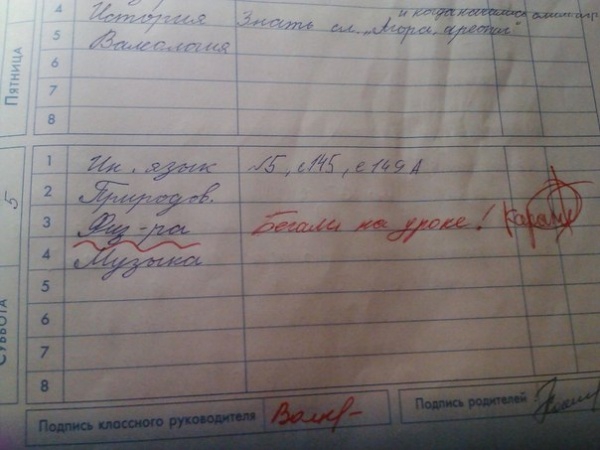 и когда начались олимпар
4 История Знать сл. „Мора, ареопаг"
ПЯТНИЦА
5 Валеология
6
7
8
5
1 Ин. язык №5, с145, с149 А
2 Природов.
3 Физ-ра Бегали на уроке!
4 Музыка
5
СУББОТА
6
7
8
Подпись классного руководителя
Подпись родителей